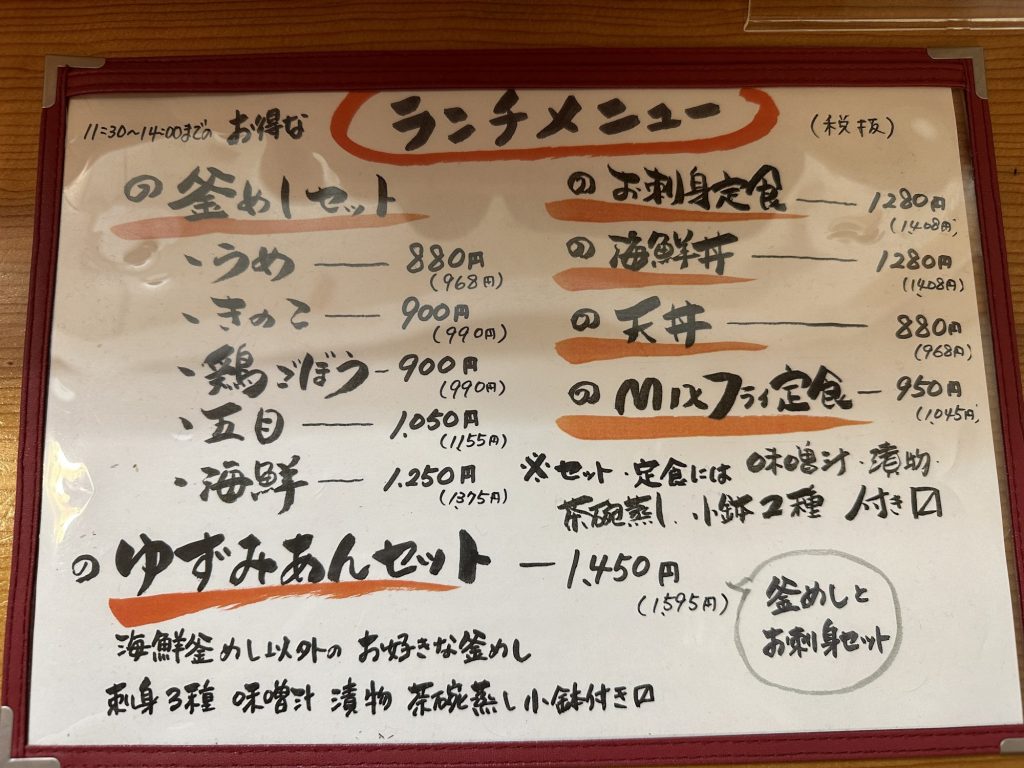 11:30~14:00までの お得な ランチメニュー (税抜)
の 釜めしセット
・うめ — 880円
(968円)
・きのこ — 900円
(990円)
・鶏ごぼう - 900円
(990円)
・五目 — 1,050円
(1,155円)
・海鮮 — 1,250円
(1,375円)
の お刺身定食 — 1280円
(1408円)
の 海鮮丼 — 1280円
(1,408円)
の 天丼 — 880円
(968円)
の Mixフライ定食 — 950円
(1,045円)
※セット・定食には 味噌汁・漬物・
茶碗蒸し、小鉢2種 付き〼
の ゆずみあんセット — 1,450円
(1,595円)
釜めしと
お刺身セット
海鮮釜めし以外の お好きな釜めし
刺身3種 味噌汁 漬物 茶碗蒸し 小鉢付き〼